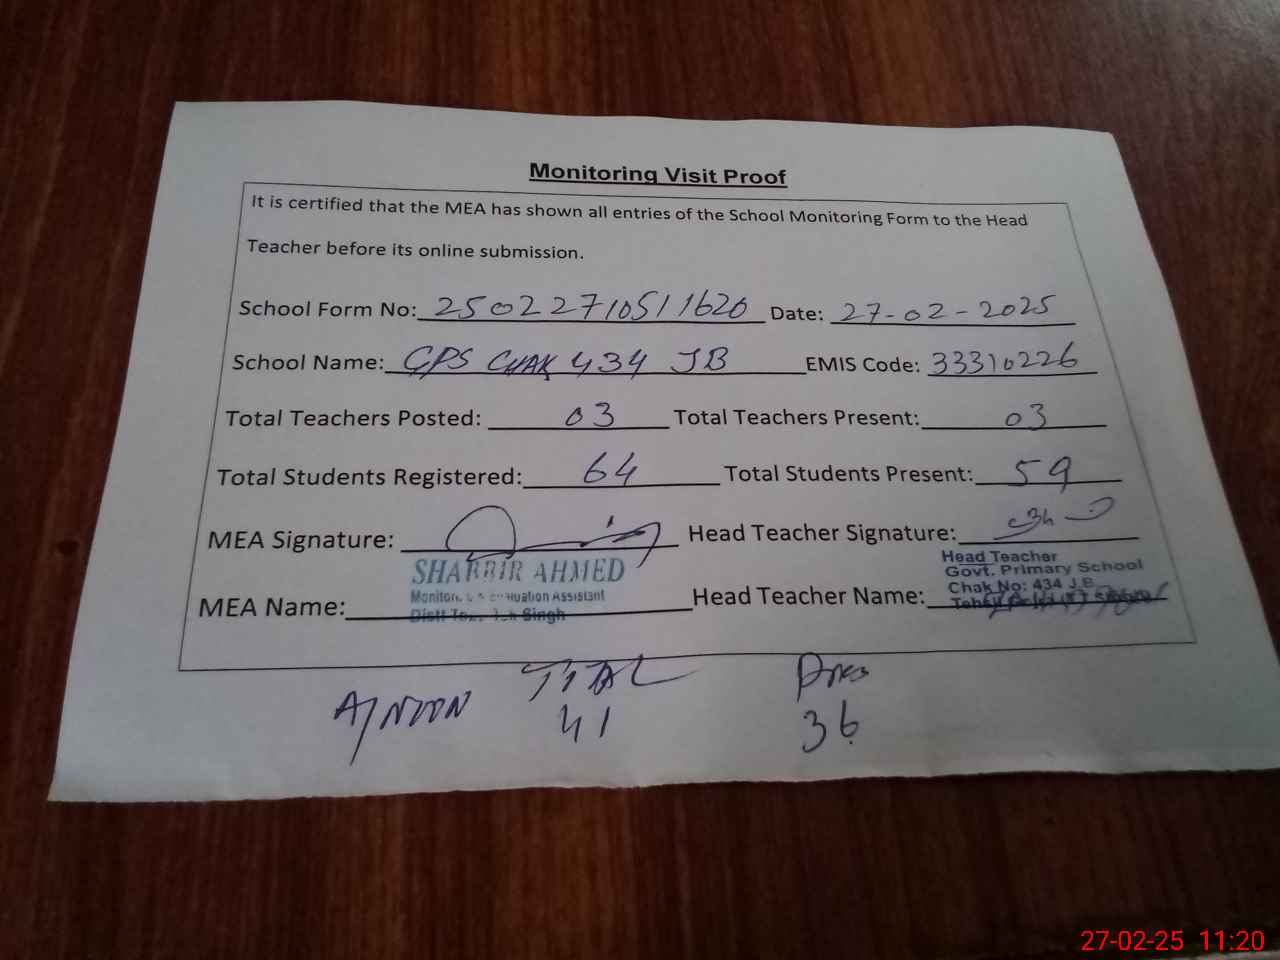 Monitoring Visit Proof
It is certified that the MEA has shown all entries of the School Monitoring Form to the Head
Teacher before its online submission.
School Form No: 25022710511620 Date: 27-02-2025
School Name: GPS CHAK 434 JB EMIS Code: 33310226
Total Teachers Posted: 03 Total Teachers Present: 03
Total Students Registered: 64 Total Students Present: 59
MEA Signature: Head Teacher Signature:
SHABBIR AHMED
Assistant
MEA Name:
Distt Singh
Head Teacher
Govt. Primary School
Chak No: 434 J.B
Head Teacher Name:
A/NOON TOTAL Pres
41 36
27-02-25 11:20